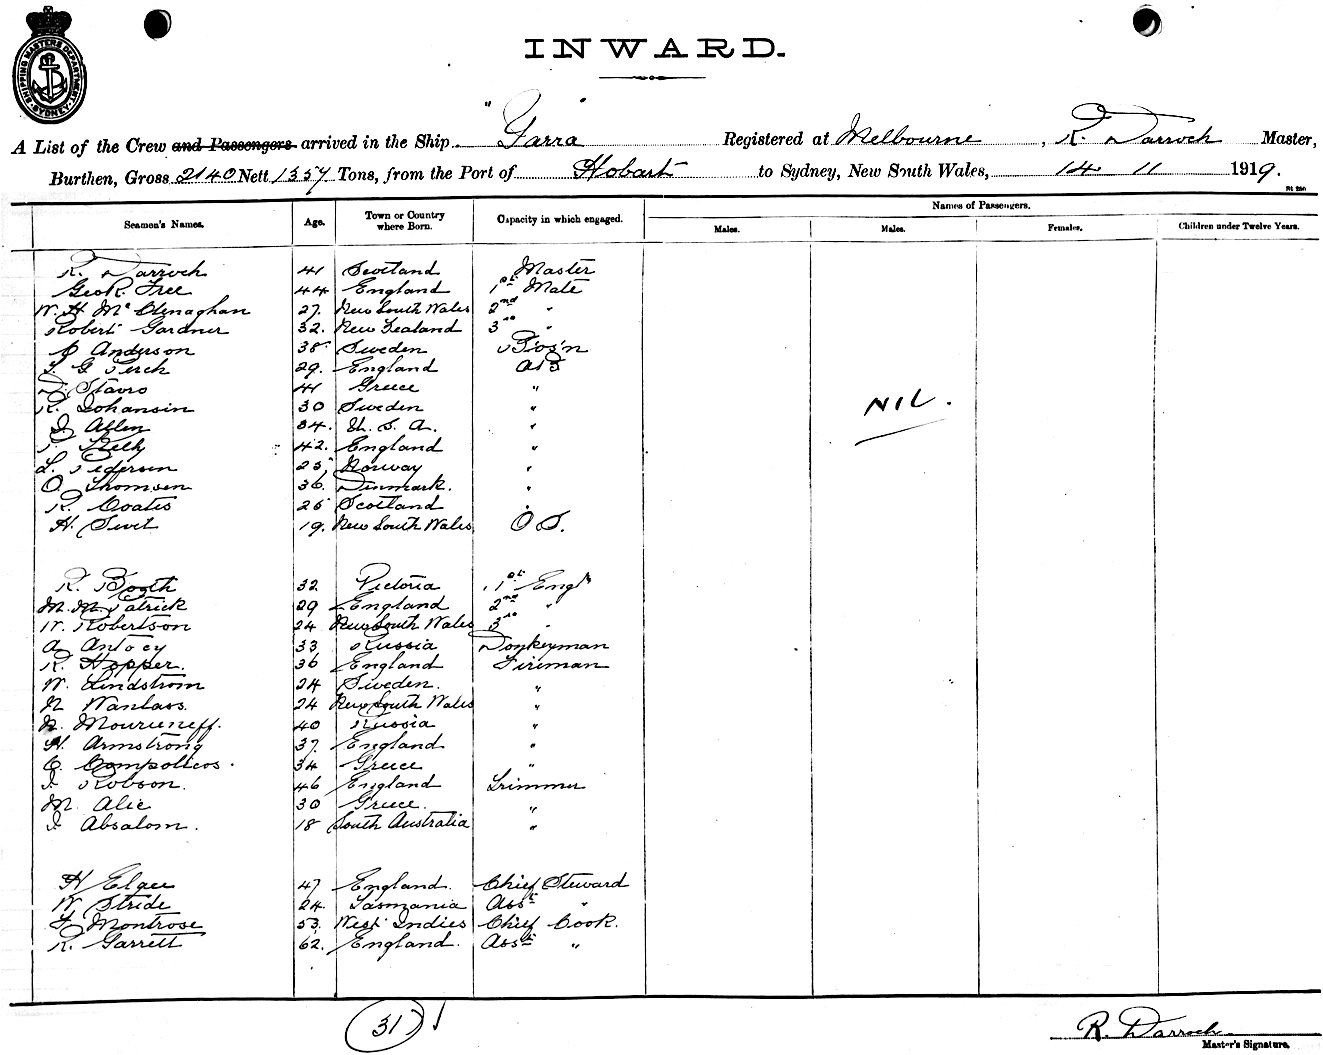 SHIPPING MASTERS DEPARTMENT SYDNEY
INWARD.
A List of the Crew and Passengers arrived in the Ship "Yarra" Registered at Melbourne, R. Darroch Master,
Burthen, Gross 2140 Nett 1357 Tons, from the Port of Hobart to Sydney, New South Wales, 14 11 1919.
Names of Passengers.
Seamen's Names. Age. Town or Country where Born. Capacity in which engaged. Males. Males. Females. Children under Twelve Years.
R. Darroch 41 Scotland Master
Geo R. Free 44 England 1st Mate
W. H. McClenaghan 27. New South Wales 2nd "
Robert Gardner 32. New Zealand 3rd "
Anderson 38 Sweden Bos'n
G Perch 29. England AB
Stavro 41 Greece "
R. Johansin 30 Sweden "
NIL.
J Allen 34. U. S. A. "
Kelly 42. England "
L. Pedersen 25 Norway "
O. Thomsen 36. Denmark. "
R. Coates 25 Scotland "
H. 19. New South Wales O S.
R. Booth 32 Victoria 1st Engr
M. McPatrick 29 England 2nd "
W. Robertson 24 New South Wales 3rd "
A 33 Russia Donkeyman
R. Hopper. 36 England Fireman
W. Lindstrom 24 Sweden. "
N Wanlass. 24 New South Wales "
N. Mourieneff. 40 Russia "
H. Armstrong 37. England "
C. Compolicos. 34 Greece "
J. Robson. 46 England Trimmer
M. Alie 30 Greece. "
J. Absalom. 18 South Australia "
H Elgee 47 England. Chief Steward
W Stride 24. Tasmania Asst "
F Montrose 53. West Indies Chief Cook.
R. Garrett 62. England. Asst "
31
R. Darroch
Master's Signature.